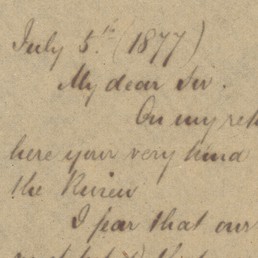 July 5th (1877)
My dear Sir.
On my ret
here your very kind
the Review
I fear that our